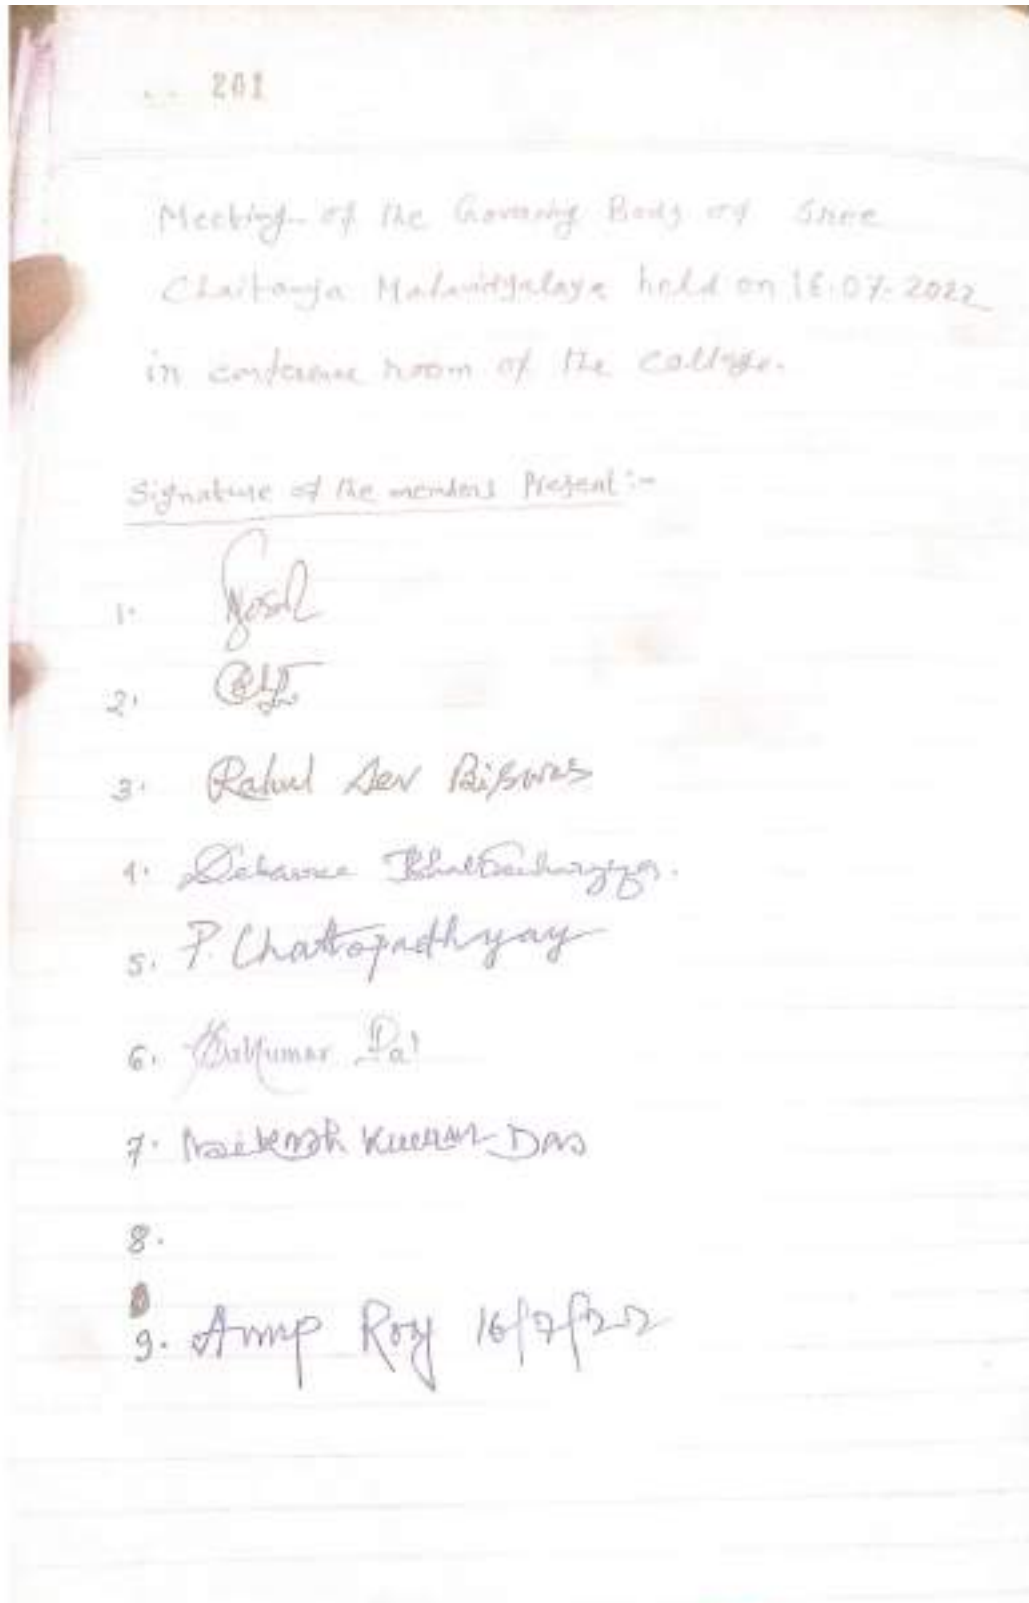 201
Meeting of the Governing Body of Shree
Chaitanya Mahavidyalaya held on 16.07.2022
in conference room of the college.
Signature of the members Present :-
1.
2.
3. Rahul Dev Biswas
4. Bhattacharyya.
5. P. Chattopadhyay
6. Pal
7. Kumar Das
8.
9. Anup Roy 16/7/22